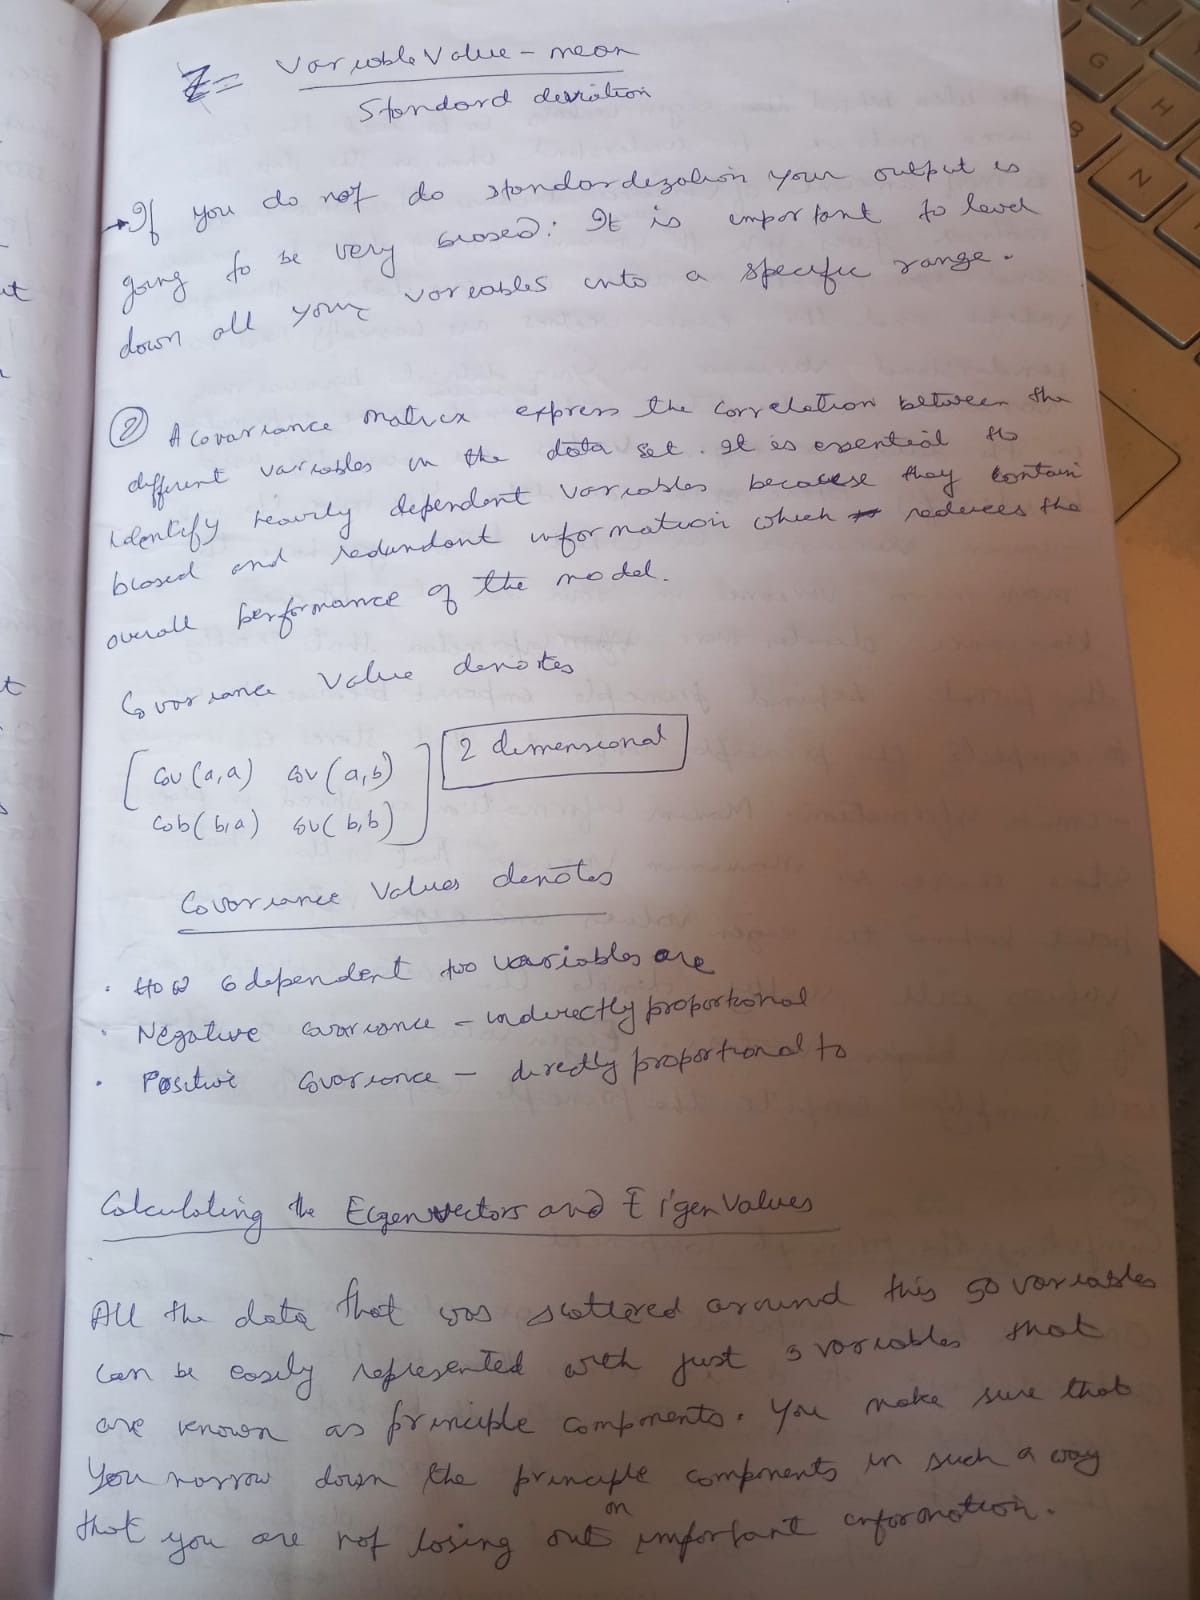 Z = Variable Value - mean
Standard deviation
→ If you do not do standardization your output is
going to be very biased. It is important to level
down all your variables into a specific range.
② A covariance matrix express the correlation between the
different variables in the data set. It is essential to
identify heavily dependent variables because they contain
biased and redundant information which reduces the
overall performance of the model.
Covariance Value denotes
[ Cov (a,a) Cov (a,b) ] 2 dimensional
Cob (b,a) Cov (b,b)
Covariance Values denotes
. How codependent two variables are
. Negative covariance - indirectly proportional
. Positive Covariance - directly proportional to
Calculating the Eigenvectors and Eigen Values
All the data that was scattered around this 50 variables
can be easily represented with just 3 variables that
are known as principle components. You make sure that
You narrow down the principle components in such a way
that you are not losing out on important information.
G
H
B
N